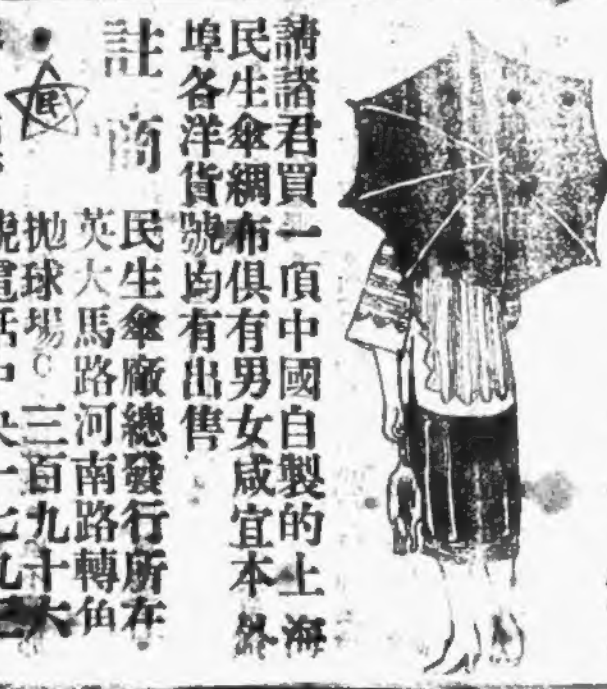 請諸君買一頂中國自製的上海
民生傘綢布俱有男女咸宜本外
埠各洋貨號均有出售
註商
民
民生傘廠總發行所在
英大馬路河南路轉角
拋球場C三百九十六
號電話中央一七九